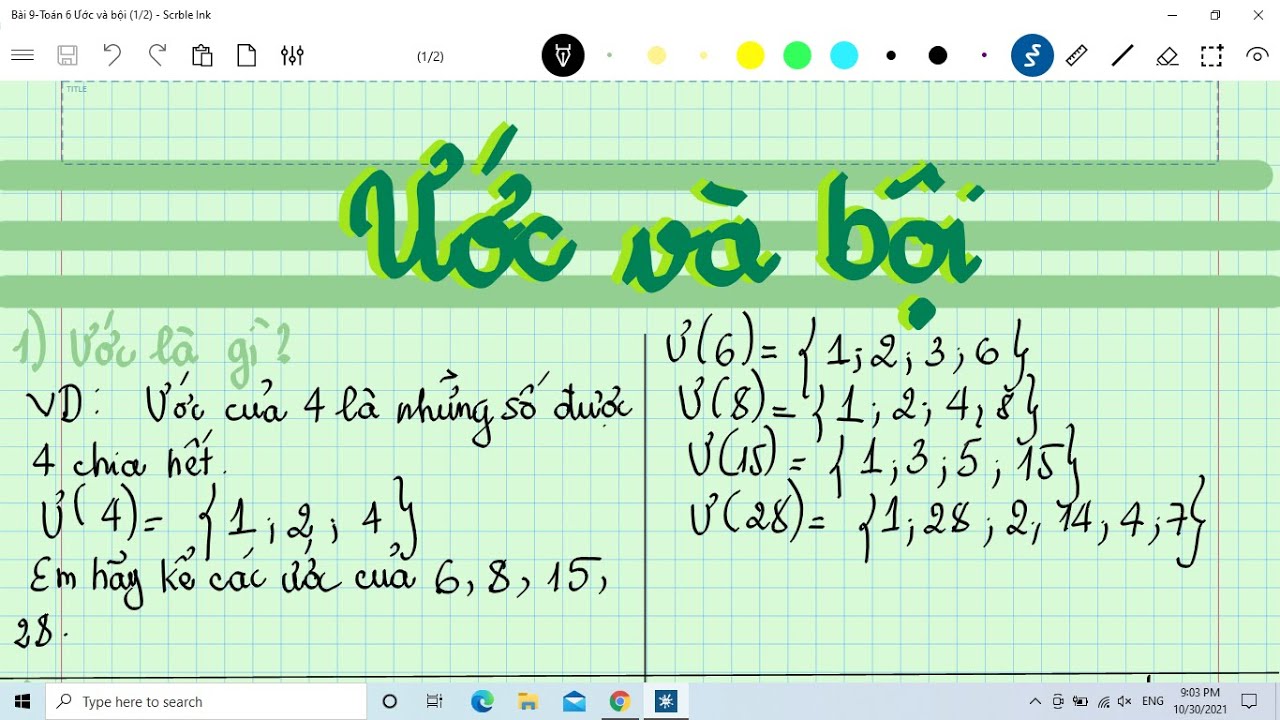 Bài 9-Toán 6 Ước và bội (1/2) - Scrble Ink
(1/2)
TITLE
Ước và bội
1) Ước là gì?
VD: Ước của 4 là những số được
4 chia hết.
Ư(4) = {1; 2; 4}
Em hãy kể các ước của 6, 8, 15,
28.
Ư(6) = {1; 2; 3; 6}
Ư(8) = {1; 2; 4; 8}
Ư(15) = {1; 3; 5; 15}
Ư(28) = {1; 28; 2; 14; 4; 7}
Type here to search
ENG
9:03 PM
10/30/2021